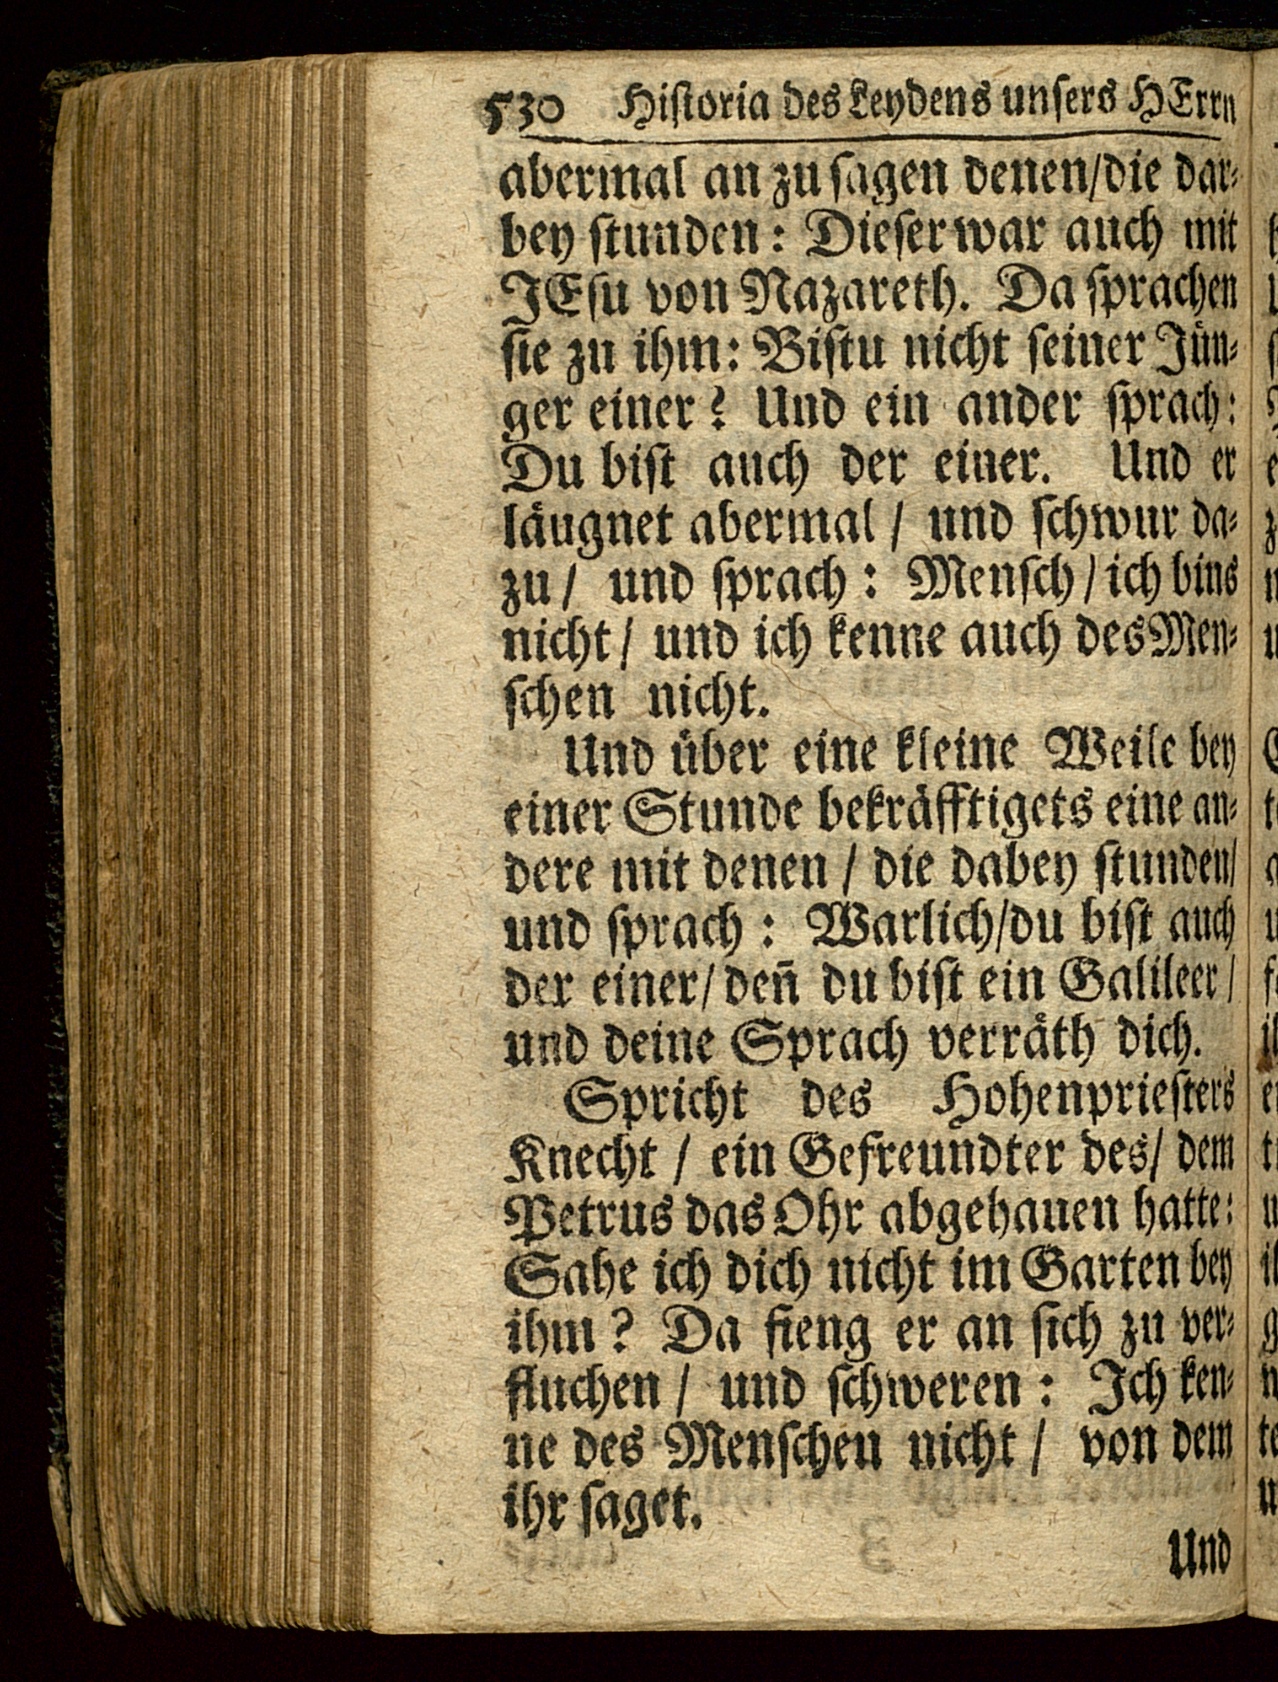 530 Hiſtoria des Leydens unſers HErrn
abermal an zu ſagen denen/die dar⸗
bey ſtunden: Dieſer war auch mit
JEſu von Nazareth. Da ſprachen
ſie zu ihm: Biſtu nicht ſeiner Jün⸗
ger einer? Und ein ander ſprach:
Du biſt auch der einer. Und er
läugnet abermal / und ſchwur da⸗
zu / und ſprach: Menſch / ich bins
nicht / und ich kenne auch des Men⸗
ſchen nicht.
Und über eine kleine Weile bey
einer Stunde bekräfftigets eine an⸗
dere mit denen / die dabey ſtunden/
und ſprach: Warlich/du biſt auch
der einer/ deñ du biſt ein Galileer /
und deine Sprach verräth dich.
Spricht des Hohenprieſters
Knecht / ein Gefreundter des/ dem
Petrus das Ohr abgehauen hatte:
Sahe ich dich nicht im Garten bey
ihm? Da fieng er an ſich zu ver⸗
fluchen / und ſchweren: Ich ken⸗
ne des Menſchen nicht / von dem
ihr ſaget.
Und